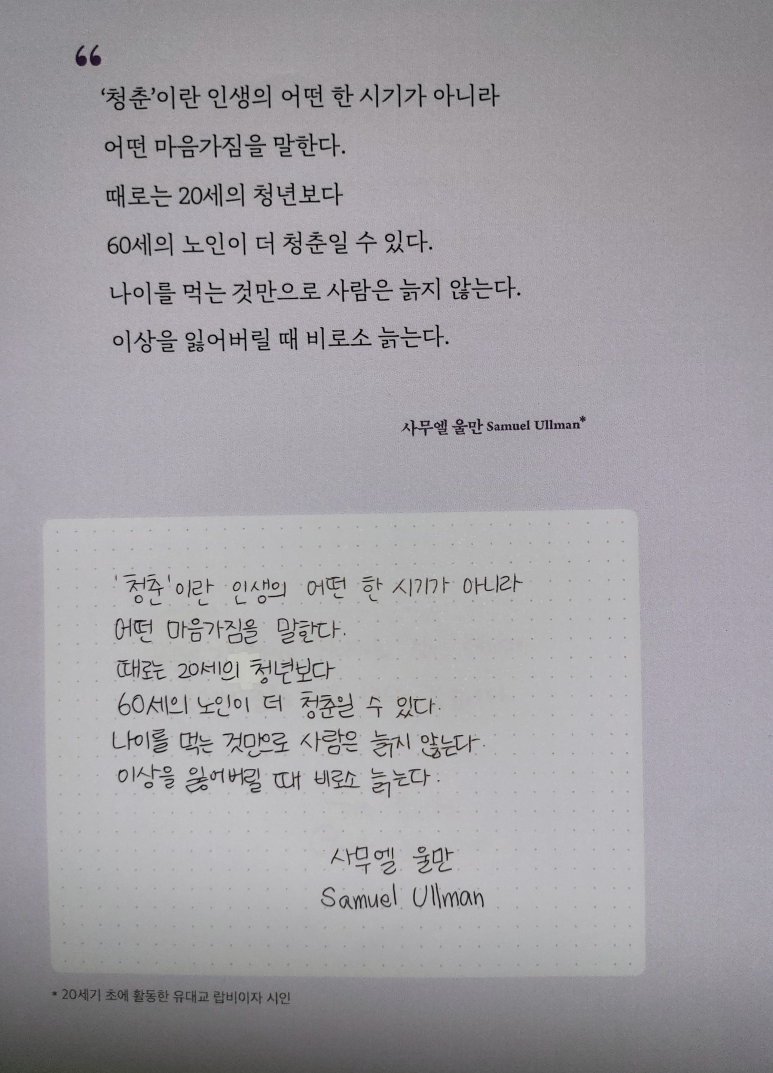 “
‘청춘’이란 인생의 어떤 한 시기가 아니라
어떤 마음가짐을 말한다.
때로는 20세의 청년보다
60세의 노인이 더 청춘일 수 있다.
나이를 먹는 것만으로 사람은 늙지 않는다.
이상을 잃어버릴 때 비로소 늙는다.
사무엘 울만 Samuel Ullman*
‘청춘’이란 인생의 어떤 한 시기가 아니라
어떤 마음가짐을 말한다.
때로는 20세의 청년보다
60세의 노인이 더 청춘일 수 있다.
나이를 먹는 것만으로 사람은 늙지 않는다.
이상을 잃어버릴 때 비로소 늙는다.
사무엘 울만
Samuel Ullman
* 20세기 초에 활동한 유대교 랍비이자 시인